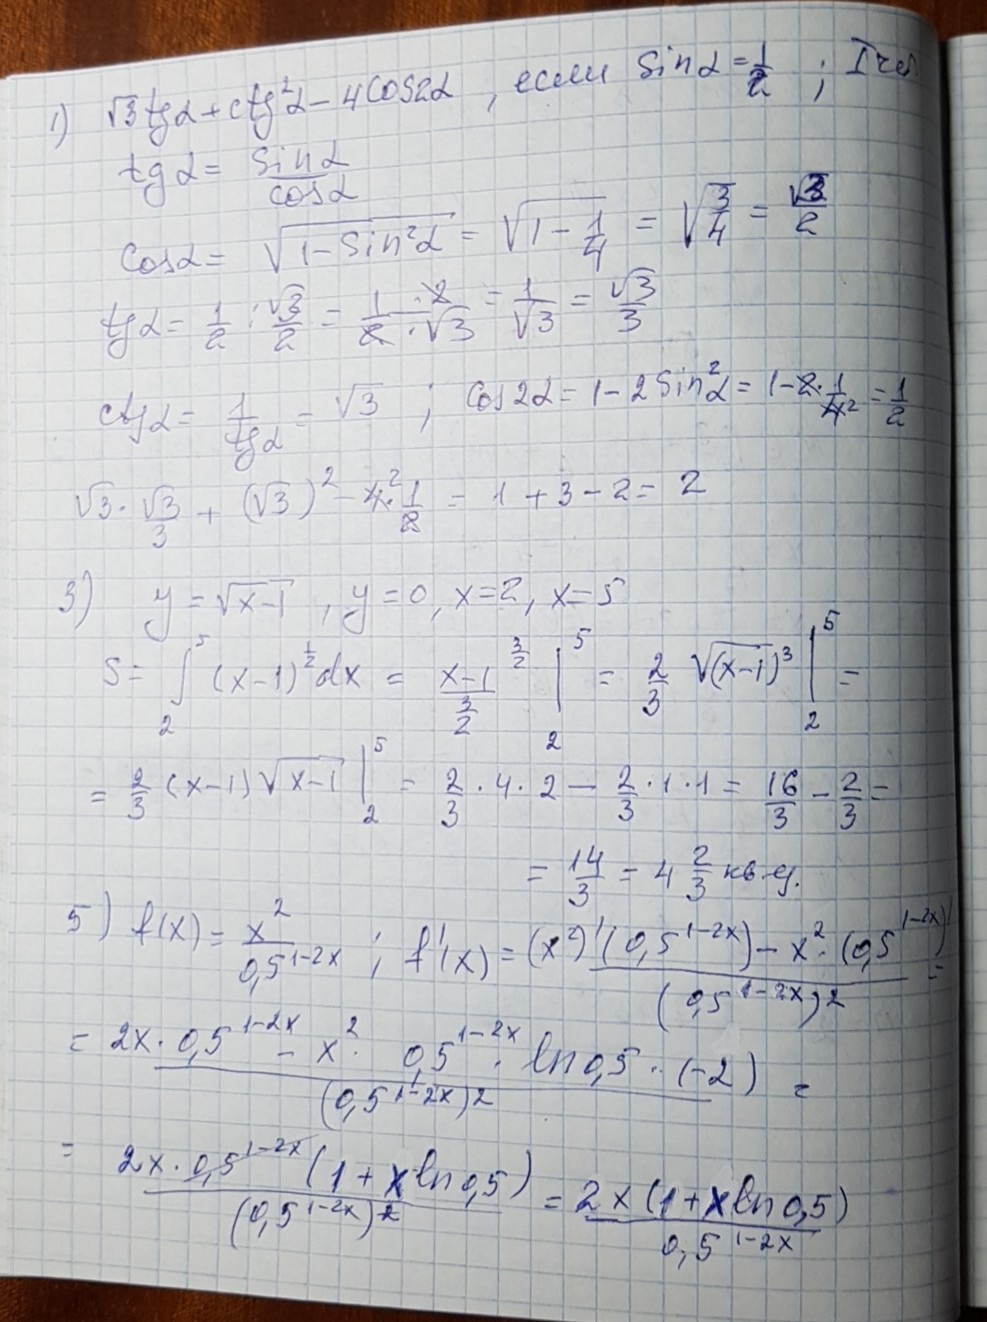 1) √3 tgα + ctg²α - 4cos2α, если sinα = 1/2 ; I
tgα = sinα/cosα
cosα = √(1 - sin²α) = √(1 - 1/4) = √(3/4) = √3/2
tgα = 1/2 : √3/2 = 1/2 · 2/√3 = 1/√3 = √3/3
ctgα = 1/tgα = √3 ; cos2α = 1 - 2sin²α = 1 - 2 · 1/4² = 1/2
√3 · √3/3 + (√3)² - 4² · 1/2 = 1 + 3 - 2 = 2
3) y = √(x-1), y = 0, x = 2, x = 5
S = ∫₂⁵ (x-1)^(1/2) dx = (x-1^(3/2))/(3/2) |₂⁵ = 2/3 √(x-1)³ |₂⁵ =
= 2/3 (x-1) √(x-1) |₂⁵ = 2/3 · 4 · 2 - 2/3 · 1 · 1 = 16/3 - 2/3 =
= 14/3 = 4 2/3 кв.ед.
5) f(x) = x²/0,5^(1-2x) ; f'(x) = ((x²)' (0,5^(1-2x)) - x² · (0,5^(1-2x))')/(0,5^(1-2x))² =
= (2x · 0,5^(1-2x) - x² · 0,5^(1-2x) · ln0,5 · (-2))/(0,5^(1-2x))² =
= (2x · 0,5^(1-2x) (1 + xln0,5))/(0,5^(1-2x))² = (2x(1 + xln0,5))/0,5^(1-2x)